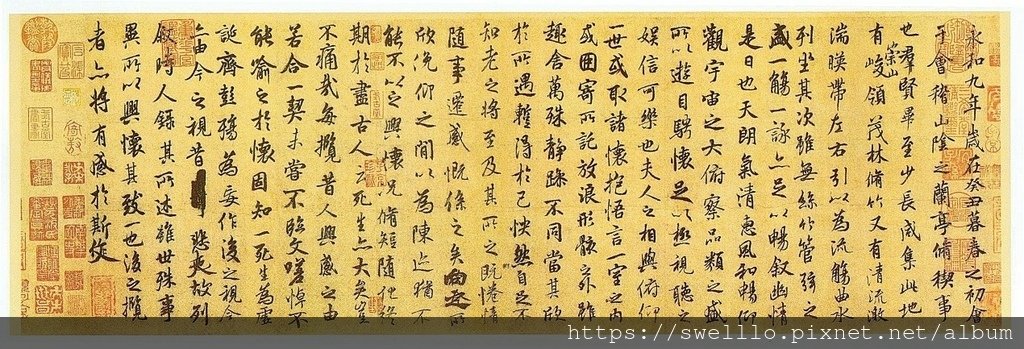 永和九年歲在癸丑暮春之初會
于會稽山陰之蘭亭脩稧事
也羣賢畢至少長咸集此地
有崇山峻領茂林脩竹又有清流激
湍暎帶左右引以為流觴曲水
列坐其次雖無絲竹管弦之
盛一觴一詠亦足以暢敘幽情
是日也天朗氣清惠風和暢仰
觀宇宙之大俯察品類之盛
所以遊目騁懷足以極視聽之
娛信可樂也夫人之相與俯仰
一世或取諸懷抱悟言一室之內
或因寄所託放浪形骸之外雖
趣舍萬殊靜躁不同當其欣
於所遇蹔得於己怏然自足不
知老之將至及其所之既惓情
隨事遷感慨係之矣向之所
欣俛仰之閒以為陳迹猶不
能不以之興懷況脩短隨化終
期於盡古人云死生亦大矣豈
不痛哉每攬昔人興感之由
若合一契未嘗不臨文嗟悼不
能喻之於懷固知一死生為虛
誕齊彭殤為妄作後之視今
亦由今之視昔悲夫故列
敘時人錄其所述雖世殊事
異所以興懷其致一也後之攬
者亦將有感於斯文
https://swelllo.pixnet.net/album